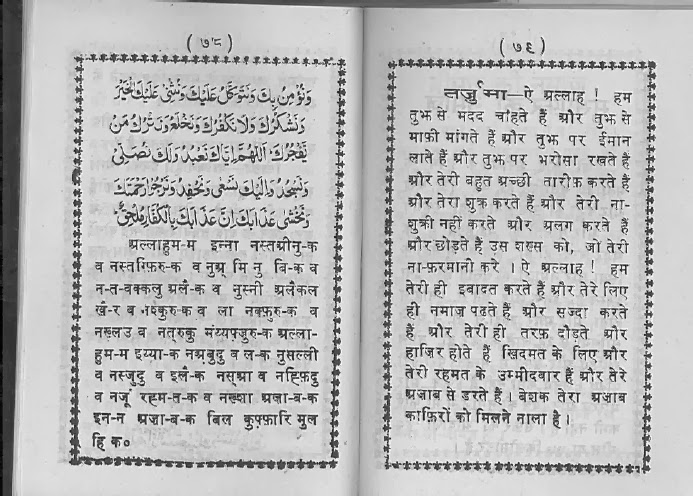 ( ७८ )
وَنُؤْمِنُ بِكَ وَنَتَوَكَّلُ عَلَيْكَ وَنُثْنِىْ عَلَيْكَ الْخَيْرَ
وَنَشْكُرُكَ وَلَا نَكْفُرُكَ وَنَخْلَعُ وَنَتْرُكُ مَنْ
يَّفْجُرُكَ اَللّٰهُمَّ اِيَّاكَ نَعْبُدُ وَلَكَ نُصَلِّىْ
وَنَسْجُدُ وَاِلَيْكَ نَسْعٰى وَنَحْفِدُ وَنَرْجُوْا رَحْمَتَكَ
وَنَخْشٰى عَذَابَكَ اِنَّ عَذَابَكَ بِالْكُفَّارِ مُلْحِقٌ
अल्लाहुम-म इन्ना नस्तओनु-क
व नस्तग़्फ़िरु-क व नुअ् मि नु बि-क व
न-त-वक्कलु अ़लै-क व नुस्नी अ़लैकल
ख़ै-र व नश्कुरु-क व ला नक्फ़ुरु-क व
नख़्लउ व नतरुकु मंय्यफ़्जुरु-क अल्ला-
हुम-म इय्या-क नअ़बुदु व ल-क नुसल्ली
व नस्जुदु व इलै-क नस्आ व नह्फ़िदु
व नर्जू रह़म-त-क व नख़्शा अ़ज़ा-ब-क
इन-न अ़ज़ा-ब-क बिल कुफ़्फ़ारि मुल
हि क०
( ७९ )
तर्जुमा—ऐ अल्लाह ! हम
तुझ से मदद चाहते हैं और तुझ से
माफ़ी मांगते हैं और तुझ पर ईमान
लाते हैं और तुझ पर भरोसा रखते हैं
और तेरी बहुत अच्छी तारीफ़ करते हैं
और तेरा शुक्र करते हैं और तेरी ना-
शुक्री नहीं करते और अलग करते हैं
और छोड़ते हैं उस शख़्स को, जो तेरी
ना-फ़रमानी करे । ऐ अल्लाह ! हम
तेरी ही इबादत करते हैं और तेरे लिए
ही नमाज़ पढते हैं और सज्दा करते
हैं और तेरी ही तरफ़ दौड़ते और
हाज़िर होते हैं ख़िदमत के लिए और
तेरी रहमत के उम्मीदवार हैं और तेरे
अज़ाब से डरते हैं । बेशक तेरा अज़ाब
काफ़िरों को मिलने नाला है ।